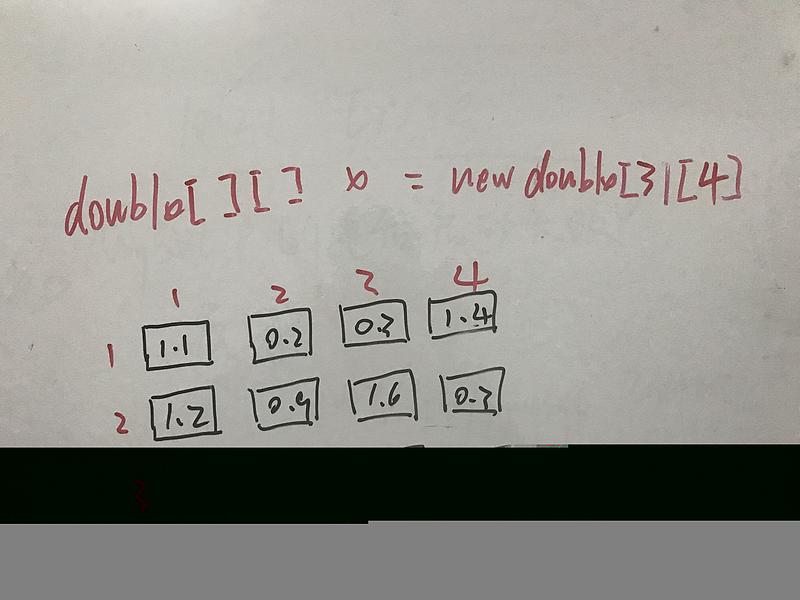 double[ ][ ] x = new double[3][4]
1 2 3 4
1 1.1 0.2 0.3 1.4
2 1.2 0.9 1.6 0.3
3